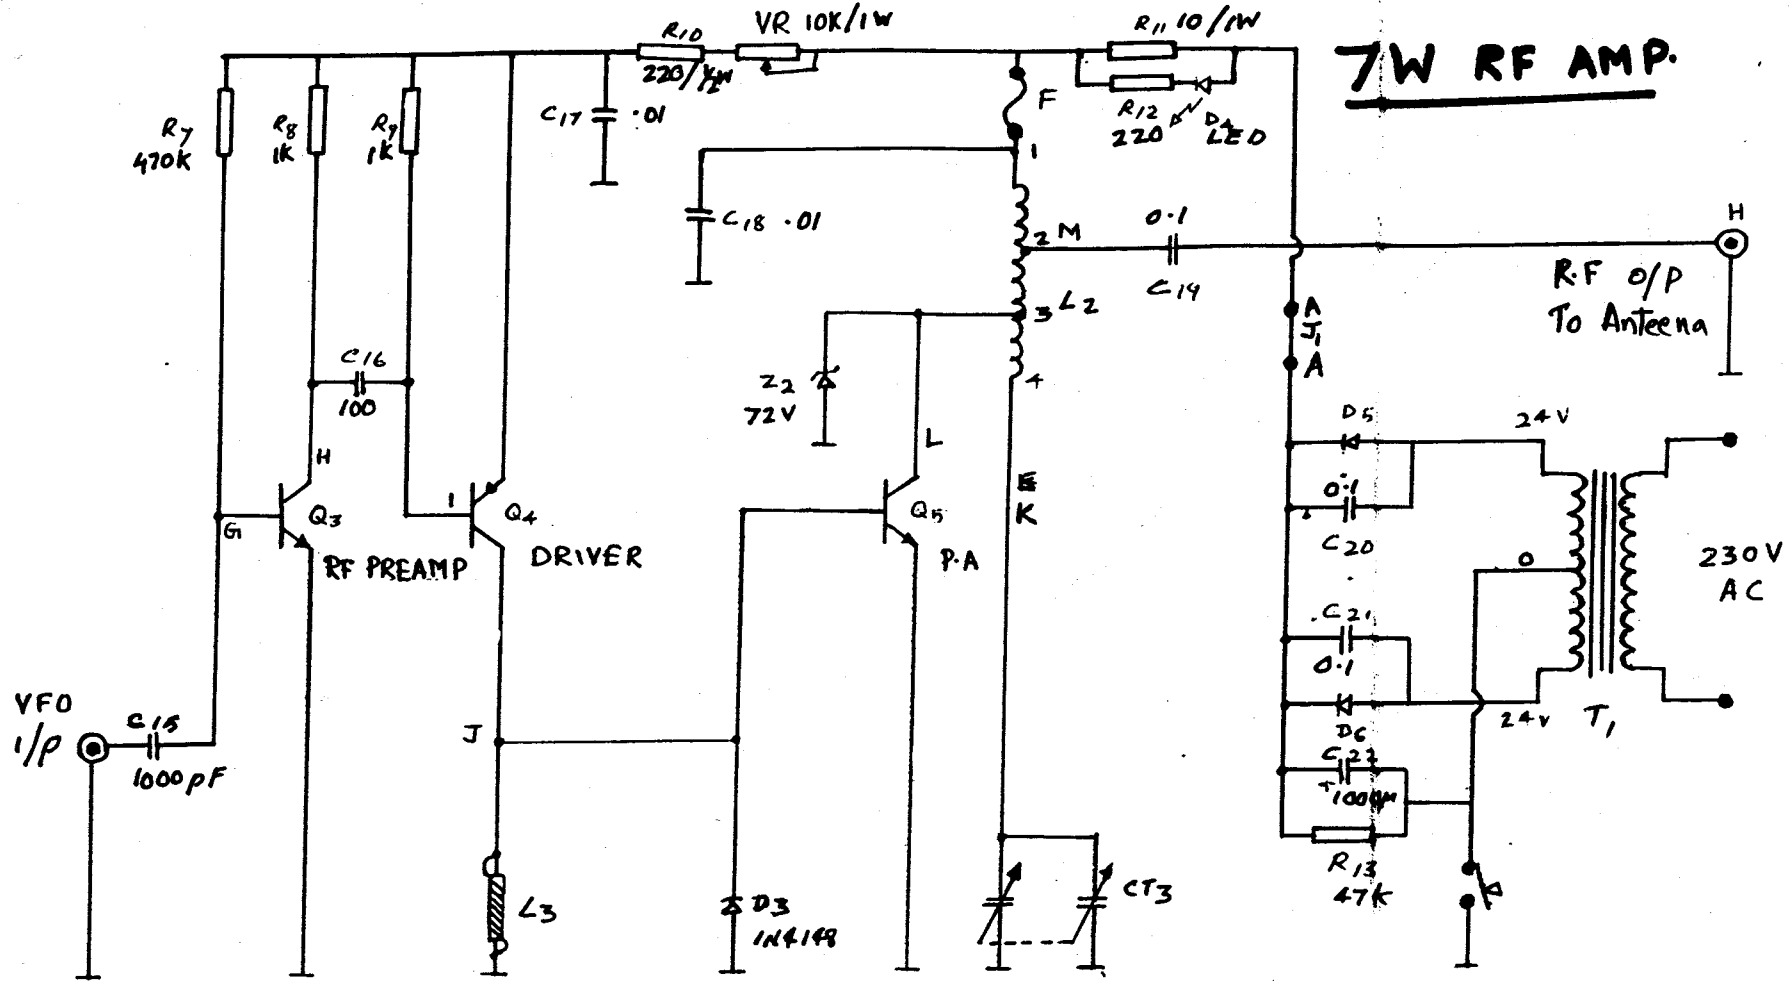 7W RF AMP.
VR 10K/1W
R10
220/½W
R11 10/1W
R12
220
D4
LED
F
C17 .01
R7
470K
R8
1K
R9
1K
1
C18 .01
2 M
0.1
C19
H
R.F O/P
To Anteena
3 L2
4
A
J1
A
C16
100
Z2
72V
L
H
G
Q3
RF PREAMP
I
Q4
DRIVER
Q5
P.A
K
D5
24V
0.1
C20
0
230V
AC
C21
0.1
D6
24V
T1
C22
+
1000µ
R13
47K
VFO
I/P
C15
1000pF
J
L3
D3
1N4148
CT3